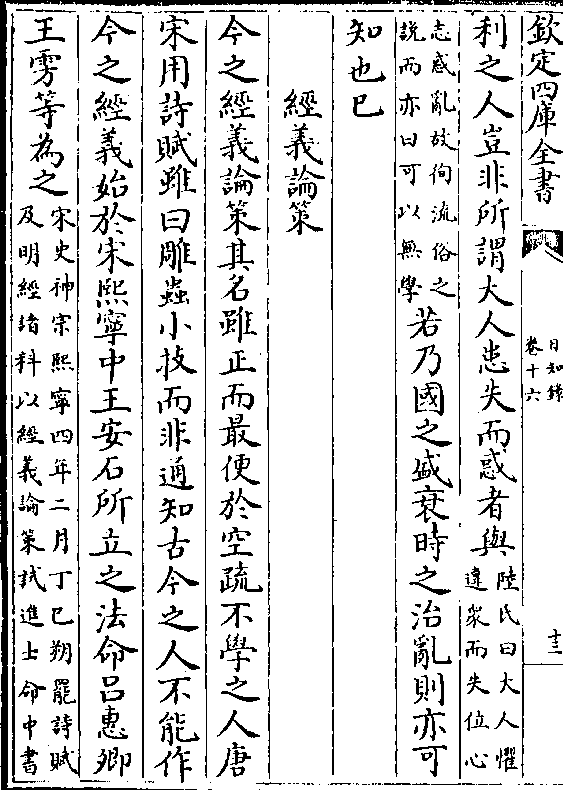 欽定四庫全書
日知錄
卷十六
十三
利之人豈非所謂大人患失而惑者與
陸氏曰大人懼
違衆而失位心
志惑亂故徇流俗之
說而亦曰可以無學
若乃國之盛衰時之治亂則亦可
知也已
經義論策
今之經義論策其名雖正而最便於空疏不學之人唐
宋用詩賦雖曰雕蟲小技而非通知古今之人不能作
今之經義始於宋熙寧中王安石所立之法命呂惠卿
王雱等為之
宋史神宗熙寧四年二月丁巳朔罷詩賦
及明經諸科以經義論策試進士命中書